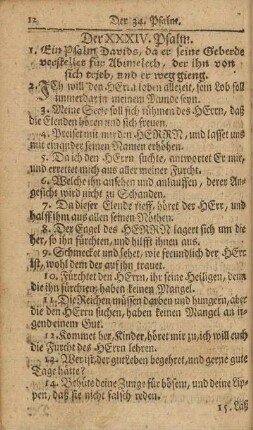 12 Der 34. Psalm.
Der XXXIV. Psalm.
1. Ein Psalm Davids, da er seine Geberde
verstellet für Abimelech, der ihn von
sich trieb, und er weg gieng.
2. JCh will den HErrn loben allezeit, sein Lob soll
immerdar in meinem Munde seyn.
3. Meine Seele soll sich rühmen des HErrn, daß
die Elenden hören und sich freuen.
4. Preiset mit mir den HERRN, und lasset uns
mit einander seinen Namen erhöhen.
5. Da ich den HErrn suchte, antwortet Er mir,
und errettet mich aus aller meiner Furcht.
6. Welche ihn ansehen und anlauffen, derer An-
gesicht wird nicht zu Schanden.
7. Da dieser Elende rieff, höret der HErr, und
halff ihm aus allen seinen Nöthen.
8. Der Engel des HERRN lagert sich um die
her, so ihn fürchten, und hilfft ihnen aus.
9. Schmecket und sehet, wie freundlich der HErr
ist, wohl dem der auf ihn trauet.
10. Fürchtet den HErrn, ihr seine Heiligen, denn
die ihn fürchten, haben keinen Mangel.
11. Die Reichen müssen darben und hungern, aber
die den HErrn suchen, haben keinen Mangel an ir-
gend einem Gut.
12. Kommet her, Kinder, höret mir zu, ich will euch
die Furcht des HErrn lehren.
13. Wer ist, der gut Leben begehret, und gerne gute
Tage hätte?
14. Behüte deine Zunge für bösem, und deine Lip-
pen, daß sie nicht falsch reden.
15. Laß